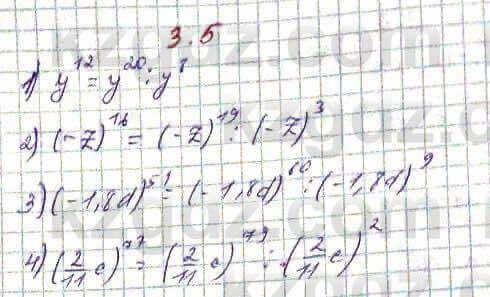 3.5
1) y¹² = y²⁰ : y⁸
2) (-z)¹⁶ = (-z)¹⁹ : (-z)³
3) (-1,8d)⁵¹ = (-1,8d)⁶⁰ : (-1,8d)⁹
4) (2/11 c)⁷⁷ = (2/11 c)⁷⁹ : (2/11 c)²